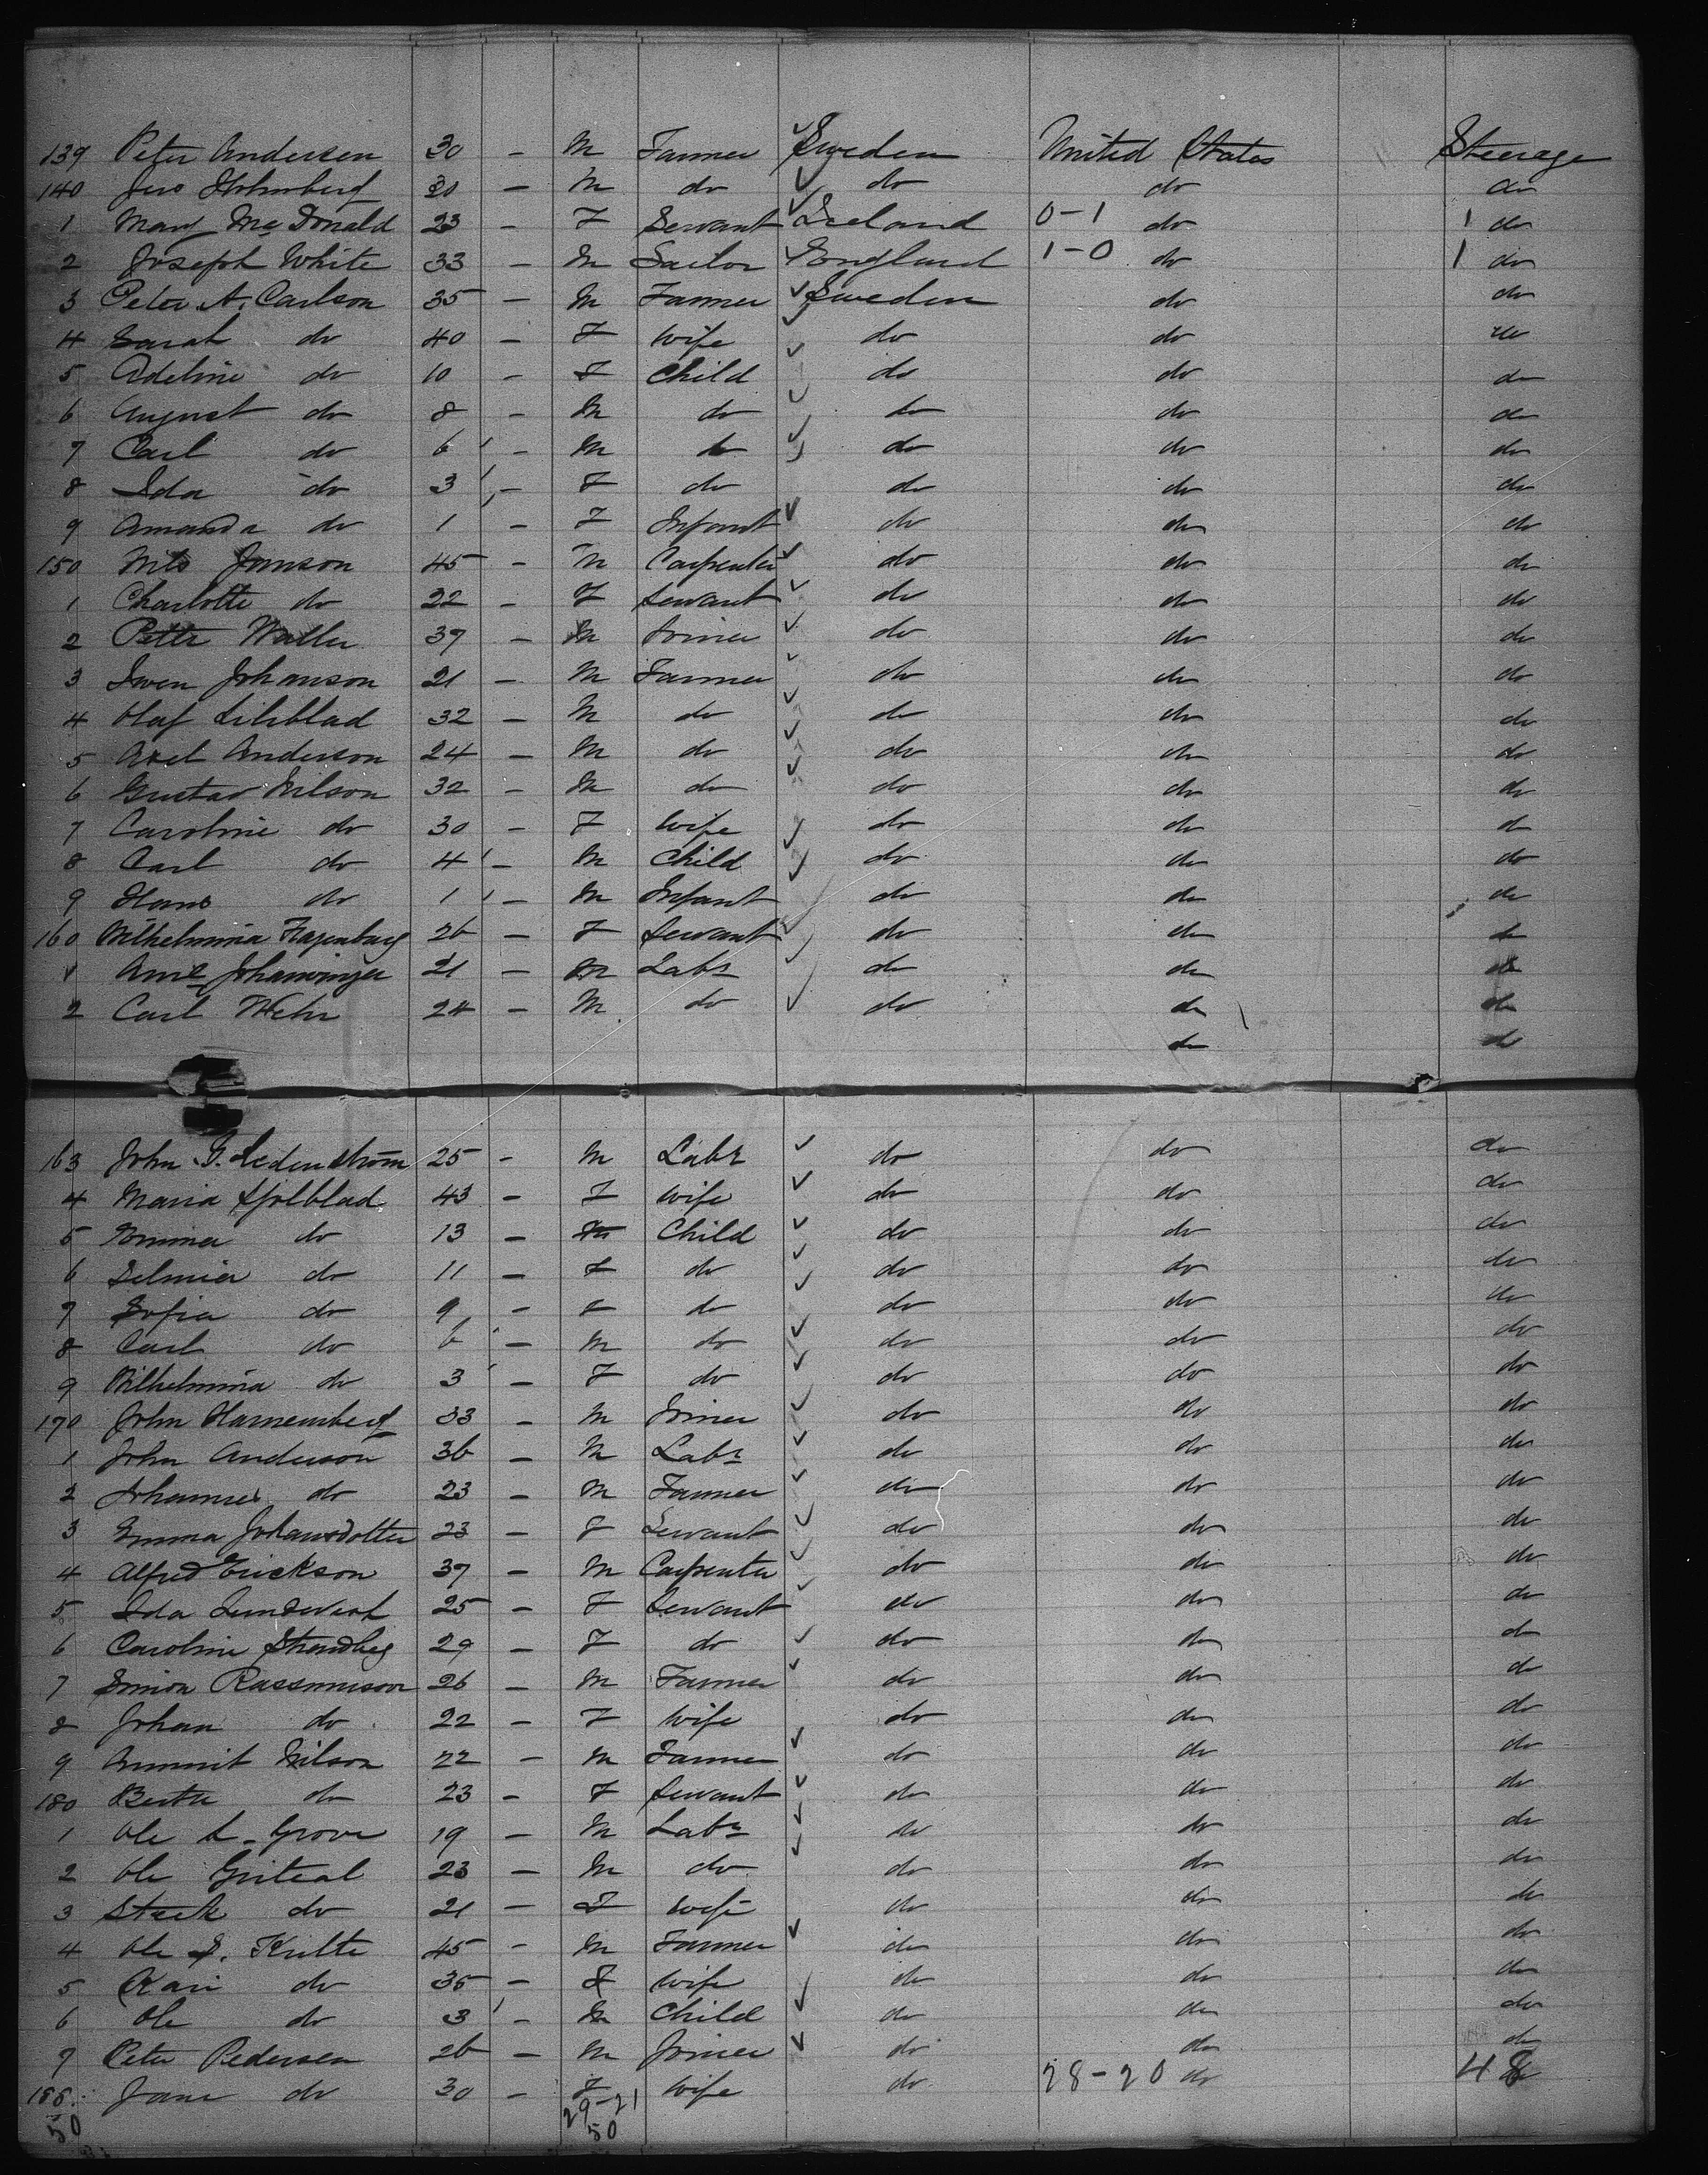 139 Peter Andersen 30 - M Farmer Sweden United States Steerage
140 Jens Holmberg 30 - M do do do do
1 Mary McDonald 23 - F Servant Ireland 0-1 do 1 do
2 Joseph White 33 - M Sailor England 1-0 do 1 do
3 Peter A. Carlson 35 - M Farmer Sweden do do
4 Sarah do 40 - F Wife do do do
5 Adeline do 10 - F Child do do do
6 August do 8 - M do do do do
7 Carl do 6 - M do do do do
8 Ida do 3 - F do do do do
9 Amanda do 1 - F Infant do do do
150 Nils Jonson 45 - M Carpenter do do do
1 Charlotte do 22 - F Servant do do do
2 Petter Waller 39 - M Joiner do do do
3 Swen Johanson 21 - M Farmer do do do
4 Olaf Liliblad 32 - M do do do do
5 Axel Anderson 24 - M do do do do
6 Gustav Nilson 32 - M do do do do
7 Caroline do 30 - F Wife do do do
8 Carl do 4 - M Child do do do
9 Hans do 1 - M Infant do do do
160 Wilhelmina Fagenburg 26 - F Servant do do do
1 21 - M Labr do do do
2 Carl Wehr 24 - M do do do do
do do
163 John G. Ledenstrom 25 - M Labr do do do
4 Maria Sjolblad 43 - F Wife do do do
5 Emma do 13 - Child do do do
6 Selmia do 11 - F do do do do
7 Sofia do 9 - F do do do do
8 Carl do 6 - M do do do do
9 Wilhelmina do 3 - F do do do do
170 John Hamemberg 33 - M Joiner do do do
1 John Anderson 36 - M Labr do do do
2 Johannes do 23 - M Farmer do do do
3 Emma Johansdotter 23 - F Servant do do do
4 Alfred Erickson 37 - M Carpenter do do do
5 Ida Lundevist 25 - F Servant do do do
6 Caroline Strandberg 29 - F do do do do
7 Simon Rassmusson 26 - M Farmer do do do
8 Johan do 22 - F Wife do do do
9 Nilson 22 - M Farmer do do do
180 Bertha do 23 - F Servant do do do
1 Ole L. Grove 19 - M Labr do do do
2 Ole Griteal 23 - M do do do do
3 do 21 - F Wife do do do
4 Ole S. Kvilte 45 - M Farmer do do do
5 Kari do 35 - F Wife do do do
6 Ole do 3 - M Child do do do
7 Peter Pedersen 26 - M Joiner do do do
188 Jane do 30 - F Wife do 28-20 do 48
50 29-21
50